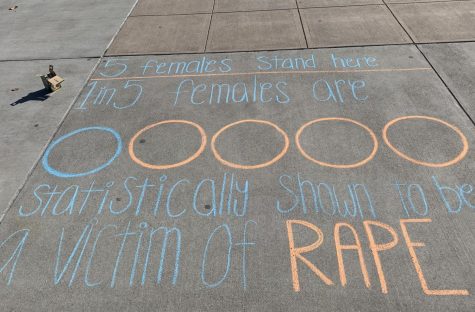 5 females Stand here
1 in 5 females are
Statistically shown to be
a victim of RAPE